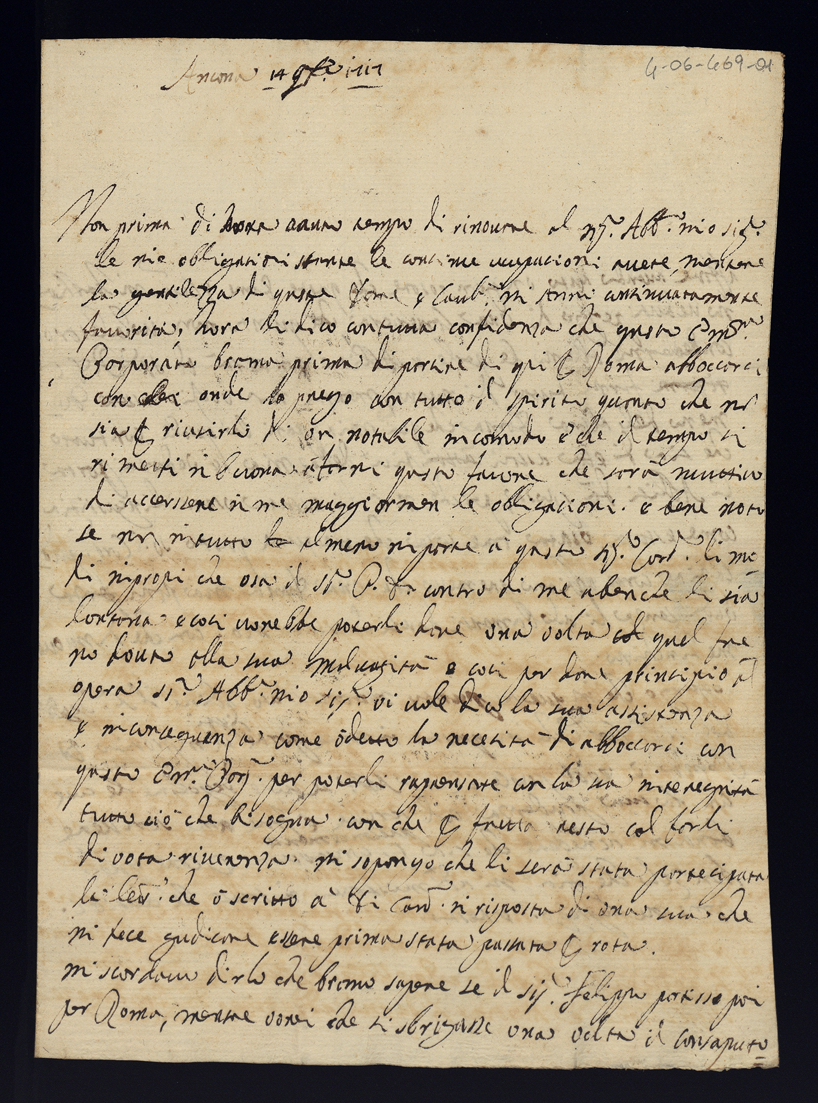 4-06-469-01
Ancona 14 9bre 1717
Non prima di hora avuto tempo di rinovare al Abb. mio Sig.
le mie obligationi stante le continue ocupationi avete, mentre
la gentilezza di queste Dame e Caul. mi anno continuatamente
favorita, hora di dico con tutta confidenza che questo Em.
Corporata bramo prima di partire di qui Roma abboccarci
con onde lo prego con tutto il spirito quanto che
sia riuscirli di notabile incomodo e che il tempo si
rimetti in buona farmi questo favore che sarà muttivo
di accrescere in me maggiormen le obligationi. e bene noto
se non in tutto almeno in parte à questo Card. li me
di impropri che osa il contro di me abenche li sia
lontana e cosi vorebbe poterli dare una volta quel fre
no douto alla sua malvagità e cosi per dare principio al
opera Sig. Abb. mio Sig. vi vole dico la sua assistenza
e in conseguenza come ò detto la necesità di abboccarci con
questo Em. per poterli rapresentare con la sua
tutto ciò che bisogna. con che resto col farli
divota riverenza. mi sopongo che li serà stata partecipata
la che ò scritto à Card. in risposta di una sua che
mi fece giudicare esere prima stata passata rota.
mi scordavo dirlo che bramo sapere se il Sig. Felippo partisse poi
per Roma, mentre vorei che si sbrigasse una volta il consaputo